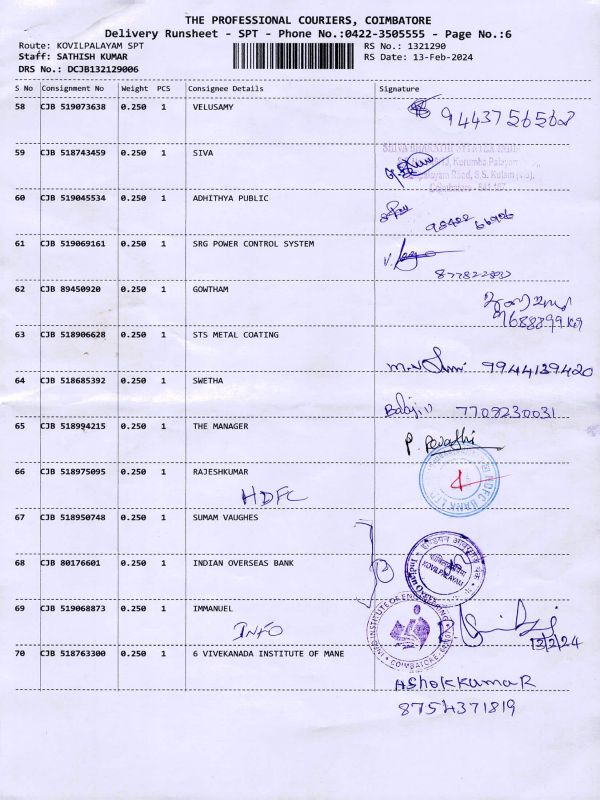 THE PROFESSIONAL COURIERS, COIMBATORE
Delivery Runsheet - SPT - Phone No.:0422-3505555 - Page No.:6
Route: KOVILPALAYAM SPT RS No.: 1321290
Staff: SATHISH KUMAR RS Date: 13-Feb-2024
DRS No.: DCJB132129006
S No Consignment No Weight PCS Consignee Details Signature
58 CJB 519073638 0.250 1 VELUSAMY
9443756568
59 CJB 518743459 0.250 1 SIVA
60 CJB 519045534 0.250 1 ADHITHYA PUBLIC
61 CJB 519069161 0.250 1 SRG POWER CONTROL SYSTEM
62 CJB 89450920 0.250 1 GOWTHAM
63 CJB 518906628 0.250 1 STS METAL COATING
9944139420
64 CJB 518685392 0.250 1 SWETHA
Balaji 7708230031
65 CJB 518994215 0.250 1 THE MANAGER
P. Revathi
HDFC BANK LTD
66 CJB 518975095 0.250 1 RAJESHKUMAR
HDFC
67 CJB 518950748 0.250 1 SUMAM VAUGHES
68 CJB 80176601 0.250 1 INDIAN OVERSEAS BANK
KOVILPALAYAM
69 CJB 519068873 0.250 1 IMMANUEL
INFO
INSTITUTE OF ENGINEERING
COIMBATORE
13/2/24
70 CJB 518763300 0.250 1 6 VIVEKANADA INSTITUTE OF MANE
AShokkumaR
8754371819